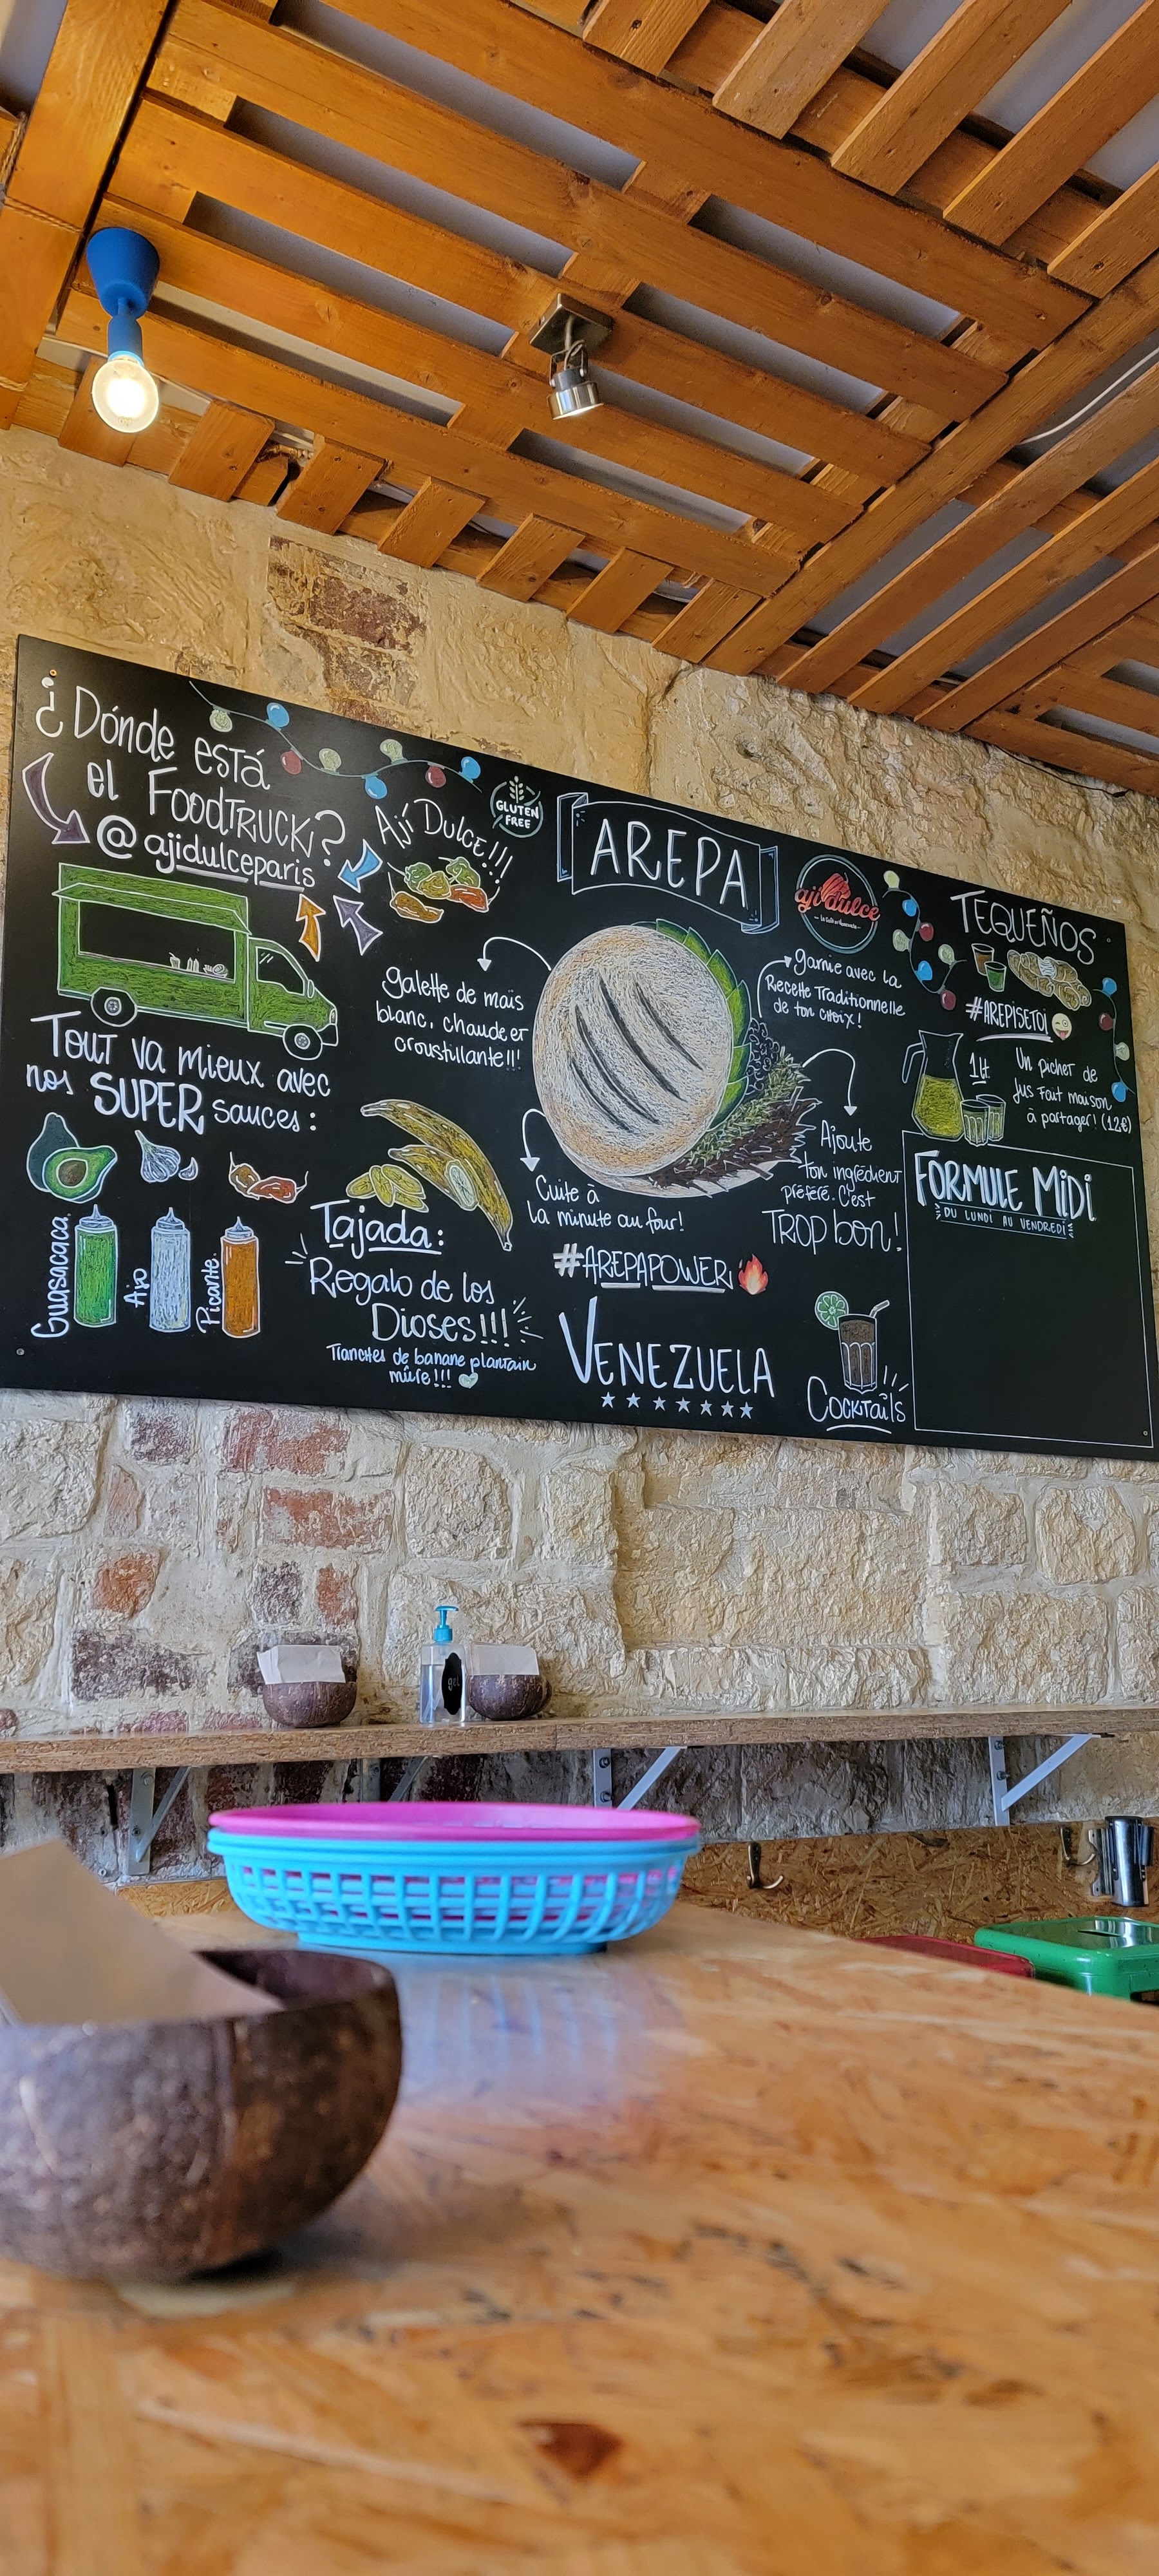 ¿Dónde está
el FoodTruck?
@ajidulceparis
Ají Dulce!!!
GLUTEN
FREE
Tout va mieux avec
nos SUPER sauces :
Guasacaca
Ajo
Picante
Galette de maïs
blanc, chaude et
croustillante!!!
Tajada:
Regalo de los
Dioses!!!
Tranches de banane plantain
mûre!!!
AREPA
aji dulce
garnie avec la
Recette Traditionnelle
de ton choix!
Ajoute
ton ingrédient
préféré. C'est
TROP bon!
Cuite à
la minute au four!
#AREPAPOWER
VENEZUELA
Cocktails
TEQUEÑOS
#AREPISETOI
1Lt
Un picher de
jus Fait maison
à partager! (12€)
FORMULE MiDi
DU LUNDI AU VENDREDI
gel